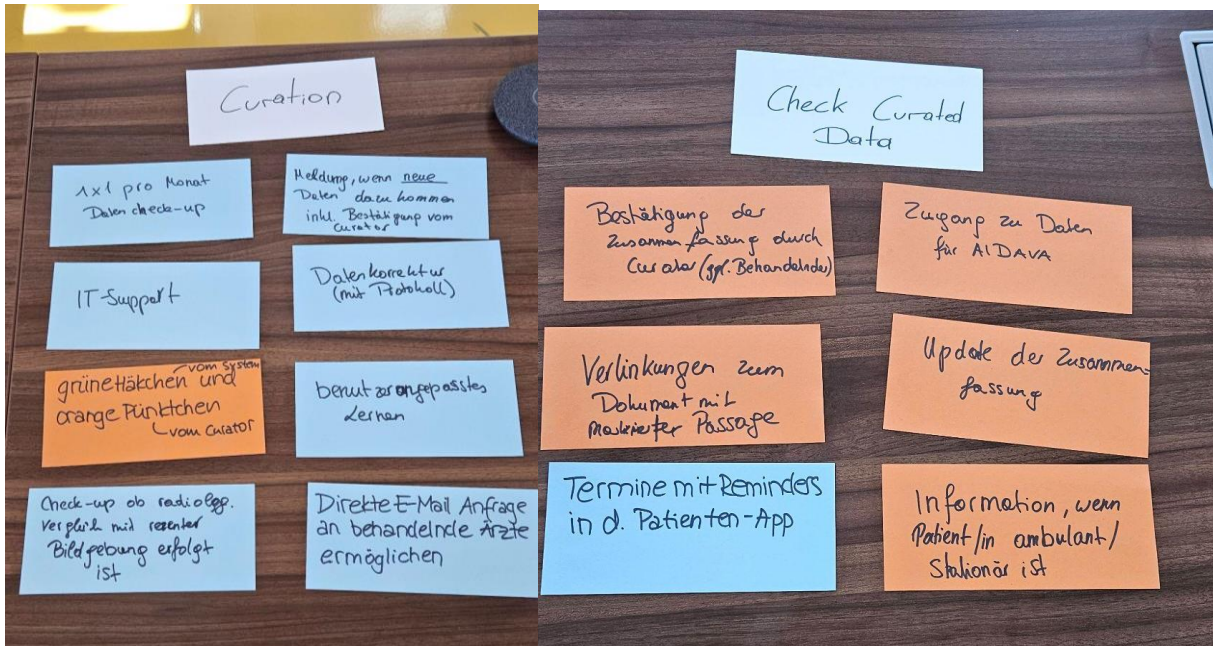 Curation
1x1 pro Monat
Daten check-up
Meldung, wenn neue
Daten dazu kommen
inkl. Bestätigung vom
Curator
IT-Support
Datenkorrektur
(mit Protokoll)
grüne Häkchen und
vom System
orange Pünktchen
vom Curator
benutzerangepasstes
Lernen
Check-up ob radiolog.
Vergleich mit rezenter
Bildgebung erfolgt
ist
Direkte E-Mail Anfrage
an behandelnde Ärzte
ermöglichen
Check Curated
Data
Bestätigung der
Zusammenfassung durch
Curator (ggf. Behandelnder)
Zugang zu Daten
für AIDAVA
Verlinkungen zum
Dokument mit
markierter Passage
Update der Zusammen=
fassung
Termine mit Reminders
in d. Patienten-App
Information, wenn
Patient/in ambulant/
Stationär ist